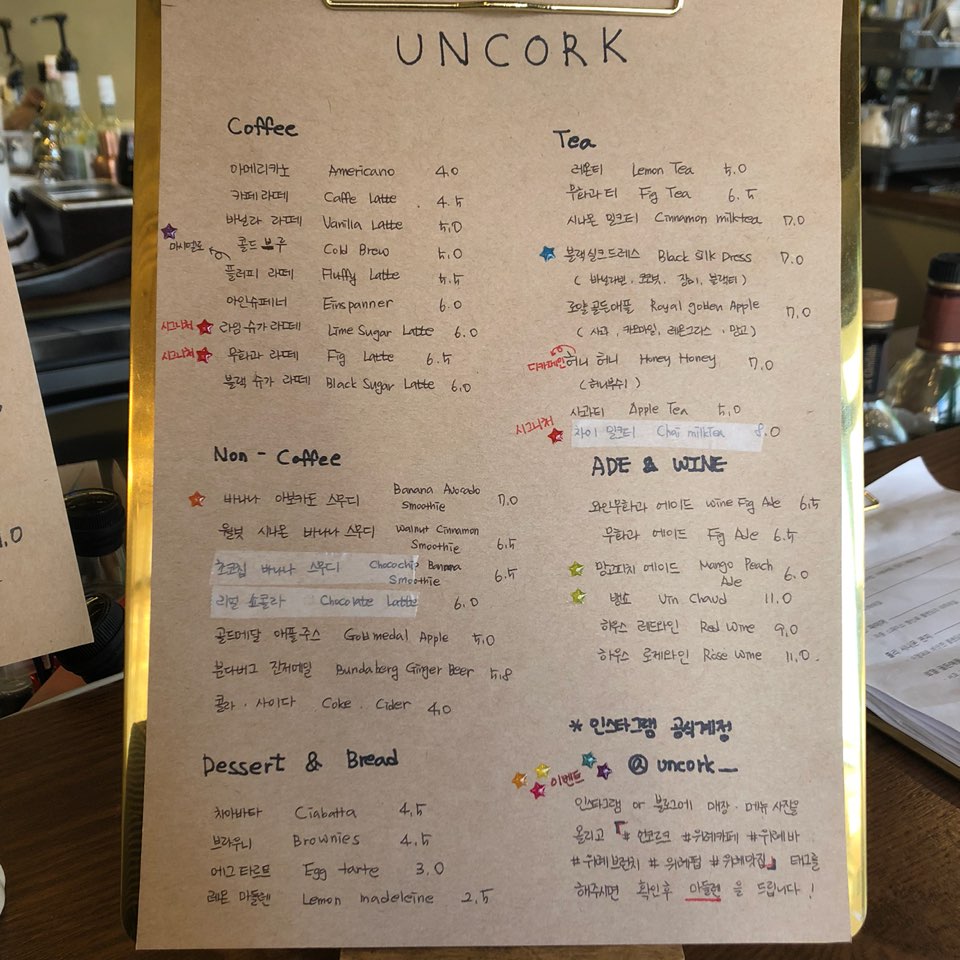 UNCORK
Coffee
아메리카노 Americano 4.0
카페 라떼 Caffe Latte 4.5
바닐라 라떼 Vanilla Latte 5.0
콜드 브루 Cold Brew 5.0
플러피 라떼 Fluffy Latte 5.5
아인슈페너 Einspanner 6.0
시그니처 라임 슈가 라떼 Lime Sugar Latte 6.0
시그니처 무화과 라떼 Fig Latte 6.5
블랙 슈가 라떼 Black Sugar Latte 6.0
Non - Coffee
바나나 아보카도 스무디 Banana Avocado
Smoothie 7.0
월넛 시나몬 바나나 스무디 Walnut Cinnamon
Smoothie 6.5
초코칩 바나나 스무디 Chocochip Banana
Smoothie 6.5
리얼 쇼콜라 Chocolate Latte 6.0
골드메달 애플주스 Gold medal Apple 5.0
분다버그 진저에일 Bundaberg Ginger Beer 5.8
콜라 · 사이다 Coke . Cider 4.0
Dessert & Bread
치아바타 Ciabatta 4.5
브라우니 Brownies 4.5
에그 타르트 Egg tarte 3.0
레몬 마들렌 Lemon madeleine 2.5
Tea
레몬티 Lemon Tea 5.0
무화과 티 Fig Tea 6.5
시나몬 밀크티 Cinnamon milktea 7.0
블랙실크드레스 Black Silk Dress 7.0
( 바닐라빈, 코코넛, 장미, 블랙티 )
로얄골든애플 Royal golden Apple 7.0
( 사과, 카모마일, 레몬그라스, 망고 )
디카페인 허니 허니 Honey Honey 7.0
( 허니부쉬 )
사과티 Apple Tea 5.0
시그니처 차이 밀크티 Chai milktea 8.0
ADE & WINE
와인무화과 에이드 wine Fig Ade 6.5
무화과 에이드 Fig Ade 6.5
망고피치 에이드 Mango Peach
Ade 6.0
뱅쇼 Vin Chaud 11.0
하우스 레드와인 Red Wine 9.0
하우스 로제와인 Rose wine 11.0
* 인스타그램 공식계정
@ uncork_
이벤트
인스타그램 or 블로그에 매장 · 메뉴 사진을
올리고 「# 언코르크 #위례카페 #위례바
#위례브런치 # 위례펍 #위례맛집」 태그를
해주시면 확인 후 마들렌 을 드립니다 !